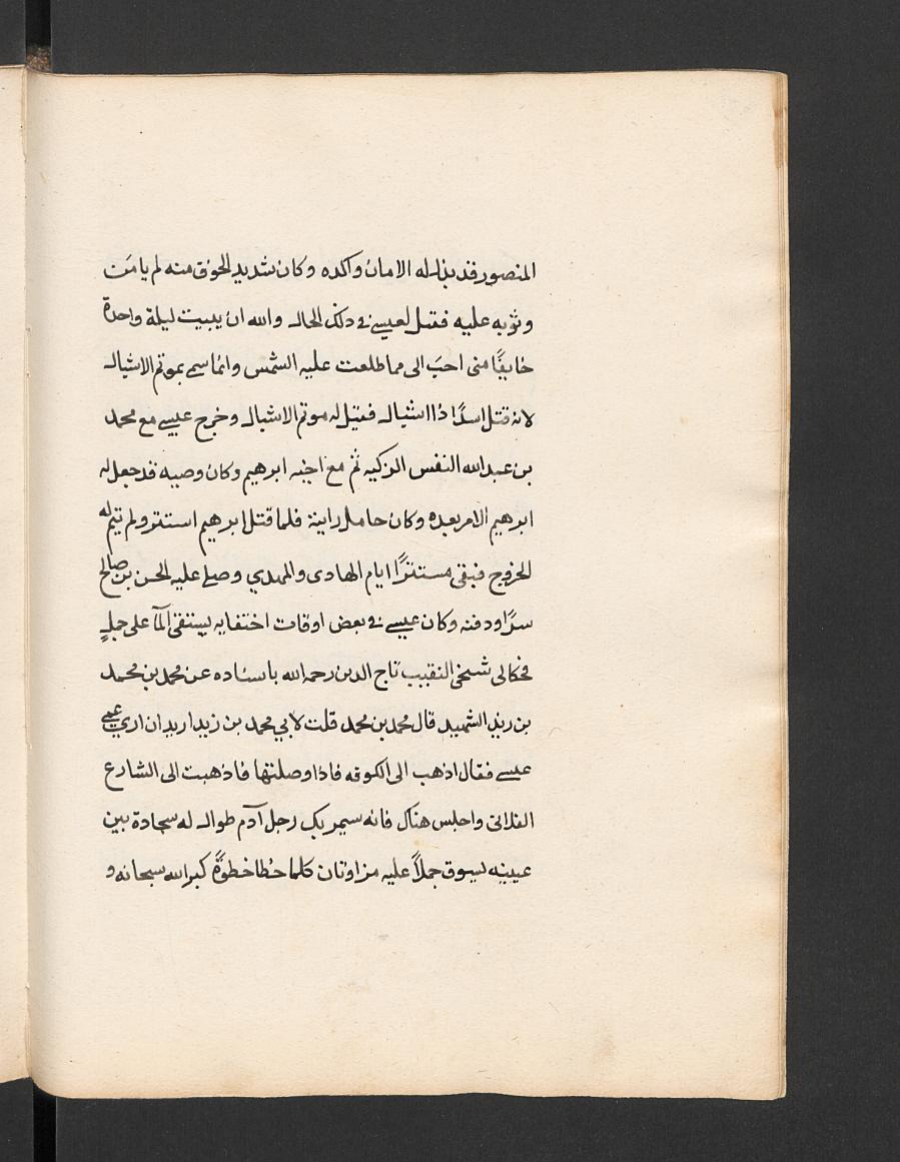 المنصور قد بذل له الامان واكده وكان شديد الخوف منه لم يامن
وثوبه عليه فقيل لعيسى في ذلك الحال والله ان يبيت ليلة واحدة
خايفًا منى احبّ الى مما طلعت عليه الشمس وانما سمى بموتم الاشبال
لانه قتل اسدًا ذا اشبال فقيل له موتم الاشبال وخرج عيسى مع محمد
بن عبد الله النفس الزكيه ثم مع اخيه ابرهيم وكان وصيه قد جعل له
ابرهيم الامر بعده وكان حامل رايته فلما قتل ابرهيم استتر ولم تيم له
الخروج فبقى مستترًا ايام الهادى والمهدي وصلى عليه الحسن بن صالح
سرًا ودفنه وكان عيسى في بعض اوقات اختفايه يستقى المآ على جملٍ
فحكا لى شيخى النقيب تاج الدين رحمه الله باسناده عن محمد بن محمد
بن زيد الشهيد قال محمد بن محمد قلت لابي محمد بن زيد اريد ان ارى عمى
عيسى فقال اذهب الى الكوفه فاذا وصلتها فاذهبت الى الشارع
الفلانى واجلس هناك فانه سيمر بك رجل آدم طوال له سجادة بين
عينيه يسوق جملاً عليه مزاوتان كلما خطا خطوةً كبر الله سبحانه و